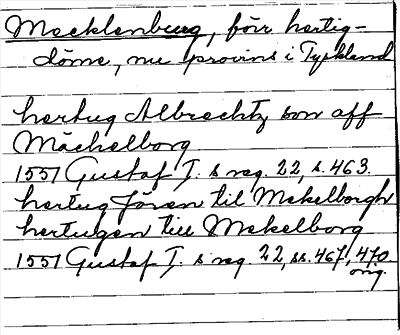 Mecklenburg, förr hertig-
döme, nu provins i Tyskland
hertug Albrechtz son aff
Mächelborg
1551 Gustaf I:s reg. 22, s. 463.
hertug Jören til Mekelborgh
hertugen till Mekelborg
1551 Gustaf I:s reg. 22, ss. 467, 470
orig.